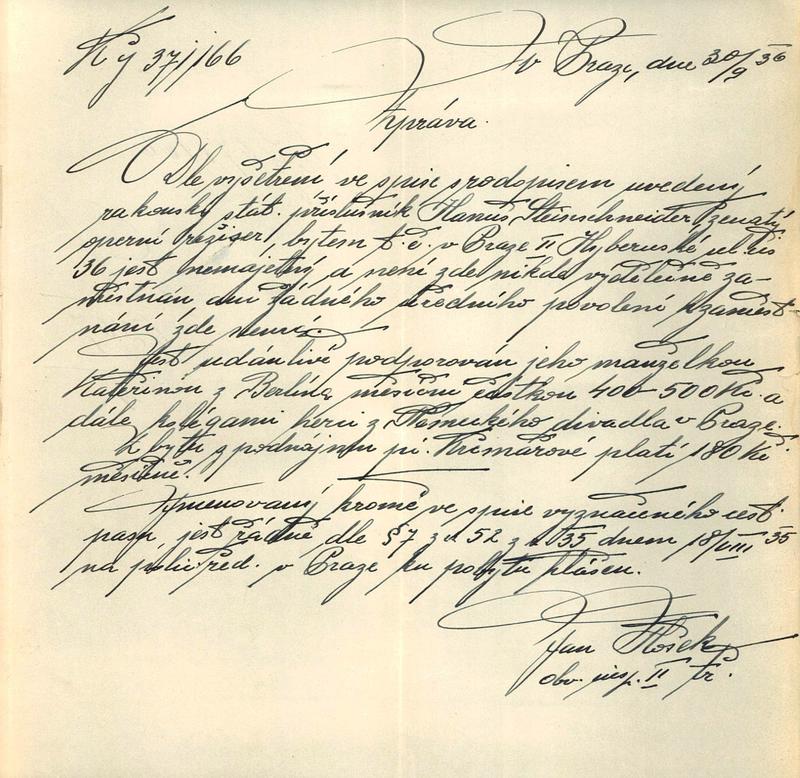 v Praze, dne 30/9 36
Zpráva.
Dle vyšetření ve spise s rodopisem uvedený
rakouský stát. příslušník Hanuš Fleischneider, ženatý
operní režiser, bytem t. č. v Praze II Hybernská ul. čís
36 jest nemajetný a není zde nikde výdělečně za-
městnán ani žádného úředního povolení k zaměst-
nání zde nemá.
Jest udánlivě podporován jeho manželkou
Kateřinou z Berlína měsíční částkou 400-500 Kč a
dále kolegami herci z Německého divadla v Praze.
Z bytu z podnájmu pí. Krimářové platí 180 Kč
měsíčně.
Jmenovaný kromě ve spise vyznačeného cest.
pasu jest řádně dle § 7 z. č. 52 z r. 35 dnem 18/VIII 35
na polic. řed. v Praze ku pobytu hlášen.
Jan
obv. insp. II tř.